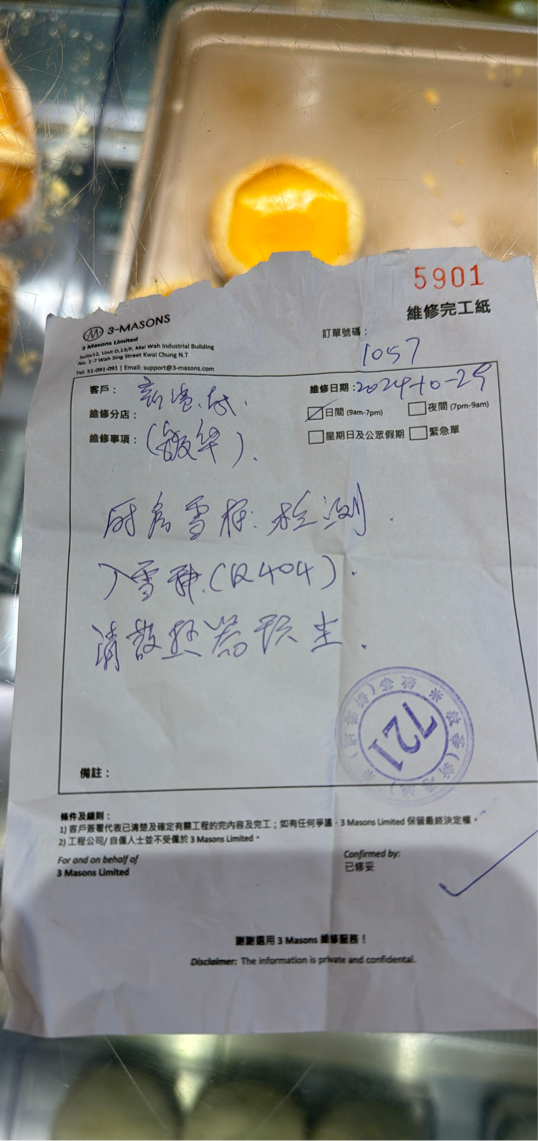 5901
3-MASONS
維修完工紙
3 Masons Limited
Suite12, Unit D,13/F, Mai Wah Industrial Building
No. 1-7 Wah Sing Street Kwai Chung N.T
Tel: 51-091-091 | Email: support@3-masons.com
訂單號碼：
1057
客戶：
維修日期：2024-10-29
維修分店：
日間 (9am-7pm) 夜間 (7pm-9am)
維修事項：
星期日及公眾假期 緊急單
廚房雪櫃. 檢測.
入雪種.(R404).
清散熱器積塵.
721
備註：
條件及細則：
1) 客戶簽署代表已清楚及確定有關工程的完內容及完工；如有任何爭議，3 Masons Limited 保留最終決定權。
2) 工程公司/ 自僱人士並不受僱於 3 Masons Limited。
For and on behalf of
3 Masons Limited
Confirmed by:
已修妥
謝謝選用 3 Masons 維修服務！
Disclaimer: The information is private and confidental.